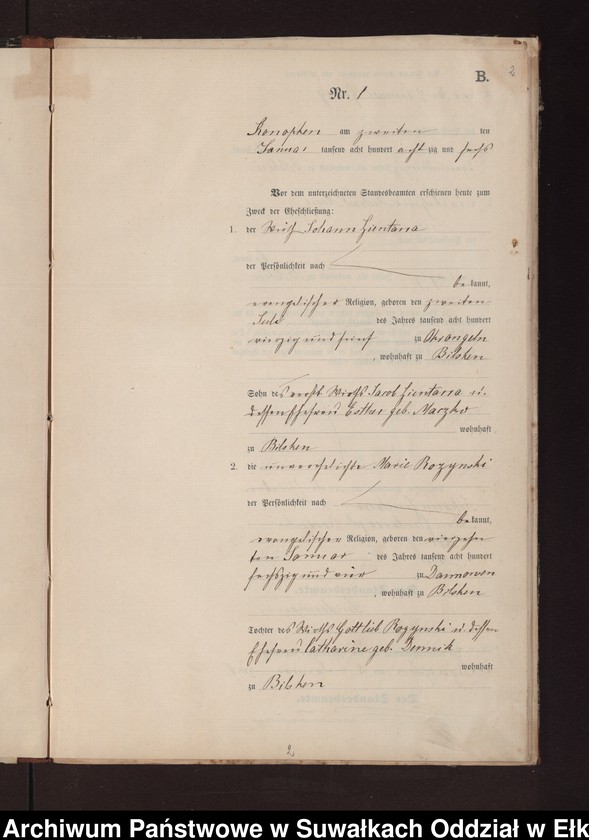 B.
2
Nr. 1
Konopken am zweiten ten
Januar tausend acht hundert acht zig und sechs
Vor dem unterzeichneten Standesbeamten erschienen heute zum
Zweck der Eheschließung:
1. der Wirth Johann Zientarra
der Persönlichkeit nach
be kannt,
evangelischer Religion, geboren den zweiten
Juli des Jahres tausend acht hundert
vierzig und fünf zu
, wohnhaft zu Bilsken
Sohn des Wirths Jacob Zientarra u.
dessen Ehefrau Esther geb. Maczko
wohnhaft
zu Bilsken
2. die unverehelichte Marie Rozynski
der Persönlichkeit nach
be kannt,
evangelischer Religion, geboren den vierzehn
ten Januar des Jahres tausend acht hundert
sechszig und vier zu Dannowen
, wohnhaft zu Bilsken
Tochter des Wirths Gottlieb Rozynski u. dessen
Ehefrau Catharine geb. Dennik
wohnhaft
zu Bilsken
2
Archiwum Państwowe w Suwałkach Oddział w Ełku